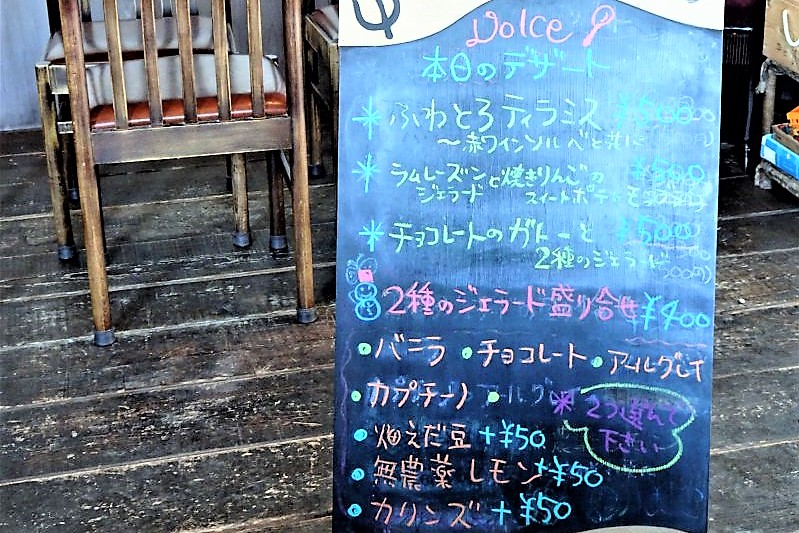 Dolce
本日のデザート
* ふわとろティラミス ¥500
〜赤ワインソルベと共に
* ラムレーズンと焼きりんごの ¥500
ジェラード スイートポテト
* チョコレートのガトーと ¥500
2種のジェラード
2種のジェラード盛り合せ ¥400
・バニラ ・チョコレート ・アールグレイ
・カプチーノ ・
* 2つ選んで
下さい
・畑えだ豆 +¥50
・無農薬レモン +¥50
・カリンズ +¥50